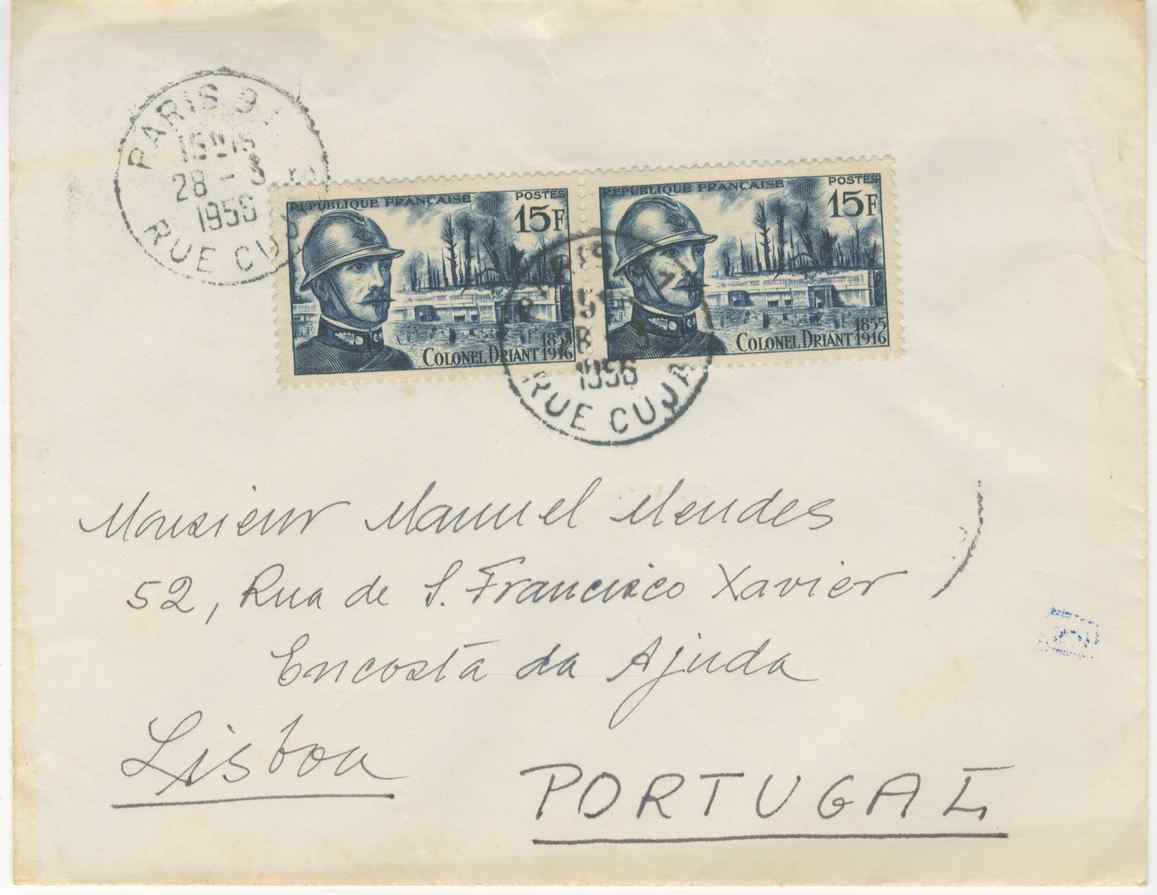 PARIS
28 - 3
1956
RUE CUJ
REPUBLIQUE FRANÇAISE POSTES
15F
COLONEL DRIANT 1855 1916
REPUBLIQUE FRANÇAISE POSTES
15F
COLONEL DRIANT 1855 1916
1956
RUE CUJA
Monsieur Manuel Mendes
52, Rua de S. Francisco Xavier
Encosta da Ajuda
Lisboa
PORTUGAL